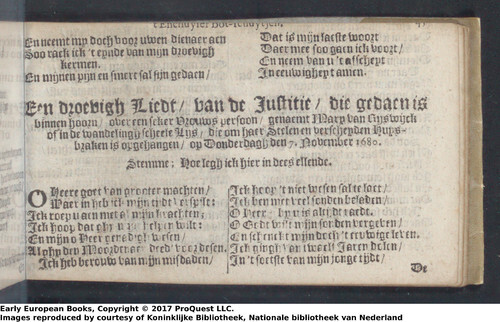 En neemt my doch voor uwen dienaer aen
Soo rack ick 't eynde van mijn droevigh
kermen.
En mijnen pijn en smert sal sijn gedaen/
Dat is mijn laetste woort
Daer mee soo gaen ick voort/
En neem van u 't afscheyt
In eeuwigheyt amen.
Een droevigh Liedt / van de Justitie / die gedaen is
binnen hoorn / over een seker Vrouws persoon / genaemt Mary van
of in de wandelingh scheele Lijs / die om haer Stelen en verscheyden Huys-
braken is opgehangen / op Donderdagh den 7. November 1680.
Stemme: Hoe legh ick hier in dees ellende.
O Heere godt van grooter machten /
Waer in heb ick mijn tijdt verspilt:
Ick roep u aen met al mijn krachten:
Ick hoop dat ghy u
En mijn o Heer genadigh wesen /
Al o my den Moordenaer deed voor desen.
Ick heb berouw van mijn misdaden /
Ick hoop 't niet wesen sal te laet /
Ick ben met veel sonden beladen /
O Heer
O Godt wilt mijn sonden vergeven /
En schenckt mijn doch 't eeuwige leven.
Ick Jaren
In 't soetste van mijn jonge tijdt /
De
Early European Books, Copyright © 2017 ProQuest LLC.
Images reproduced by courtesy of Koninklijke Bibliotheek, Nationale bibliotheek van Nederland